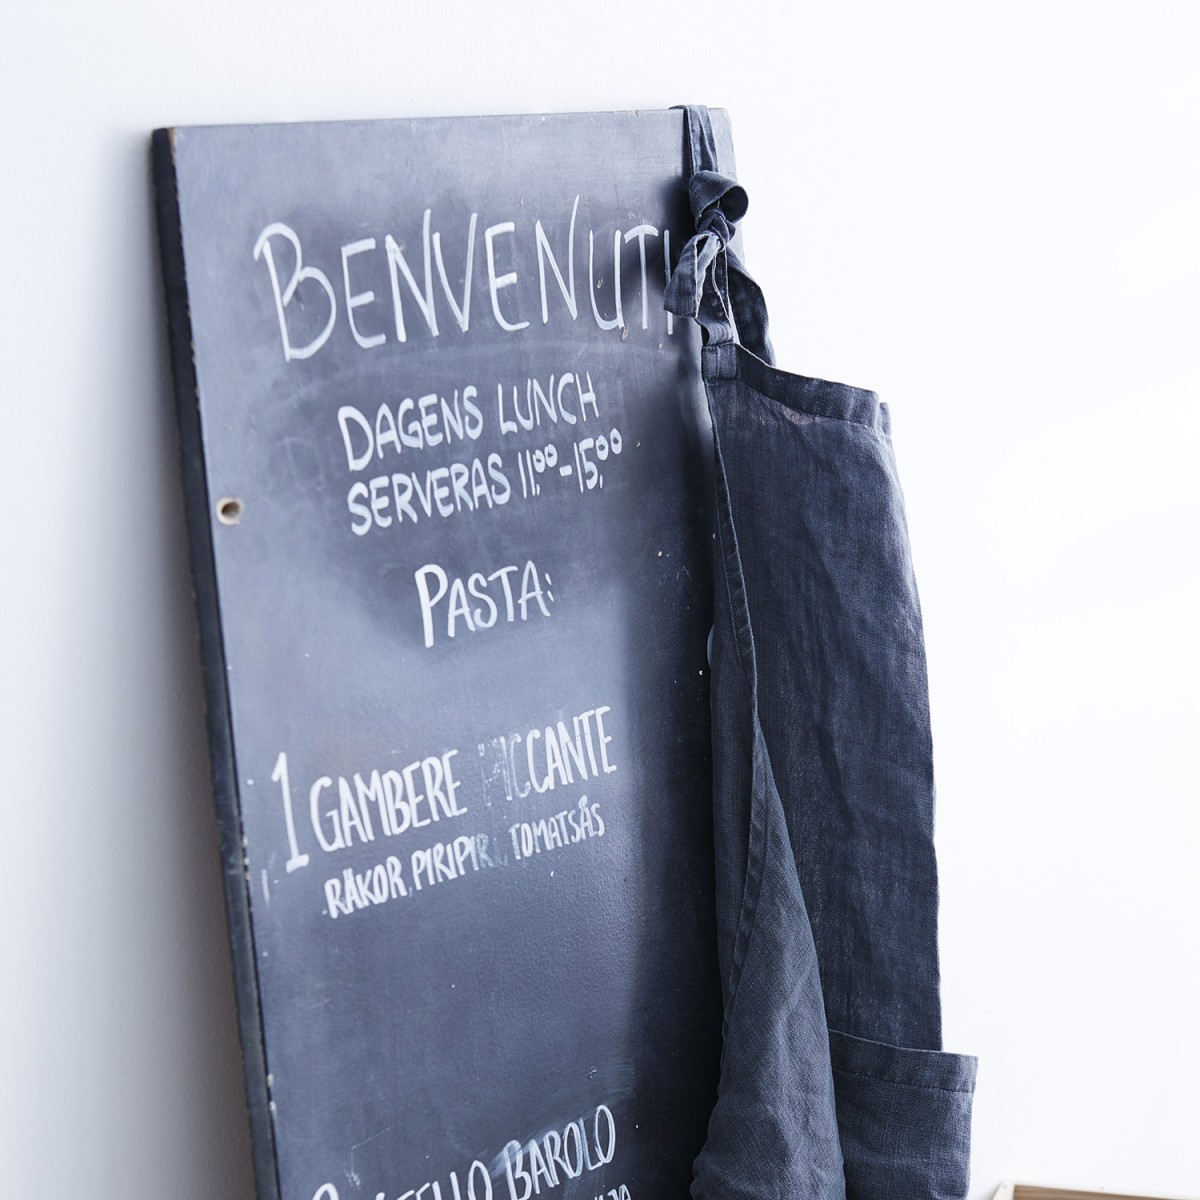 BENVENUTI
DAGENS LUNCH
SERVERAS 11.00-15.00
PASTA:
1 GAMBERE PICCANTE
RÄKOR, PIRIPIRI, TOMATSÅS
BAROLO